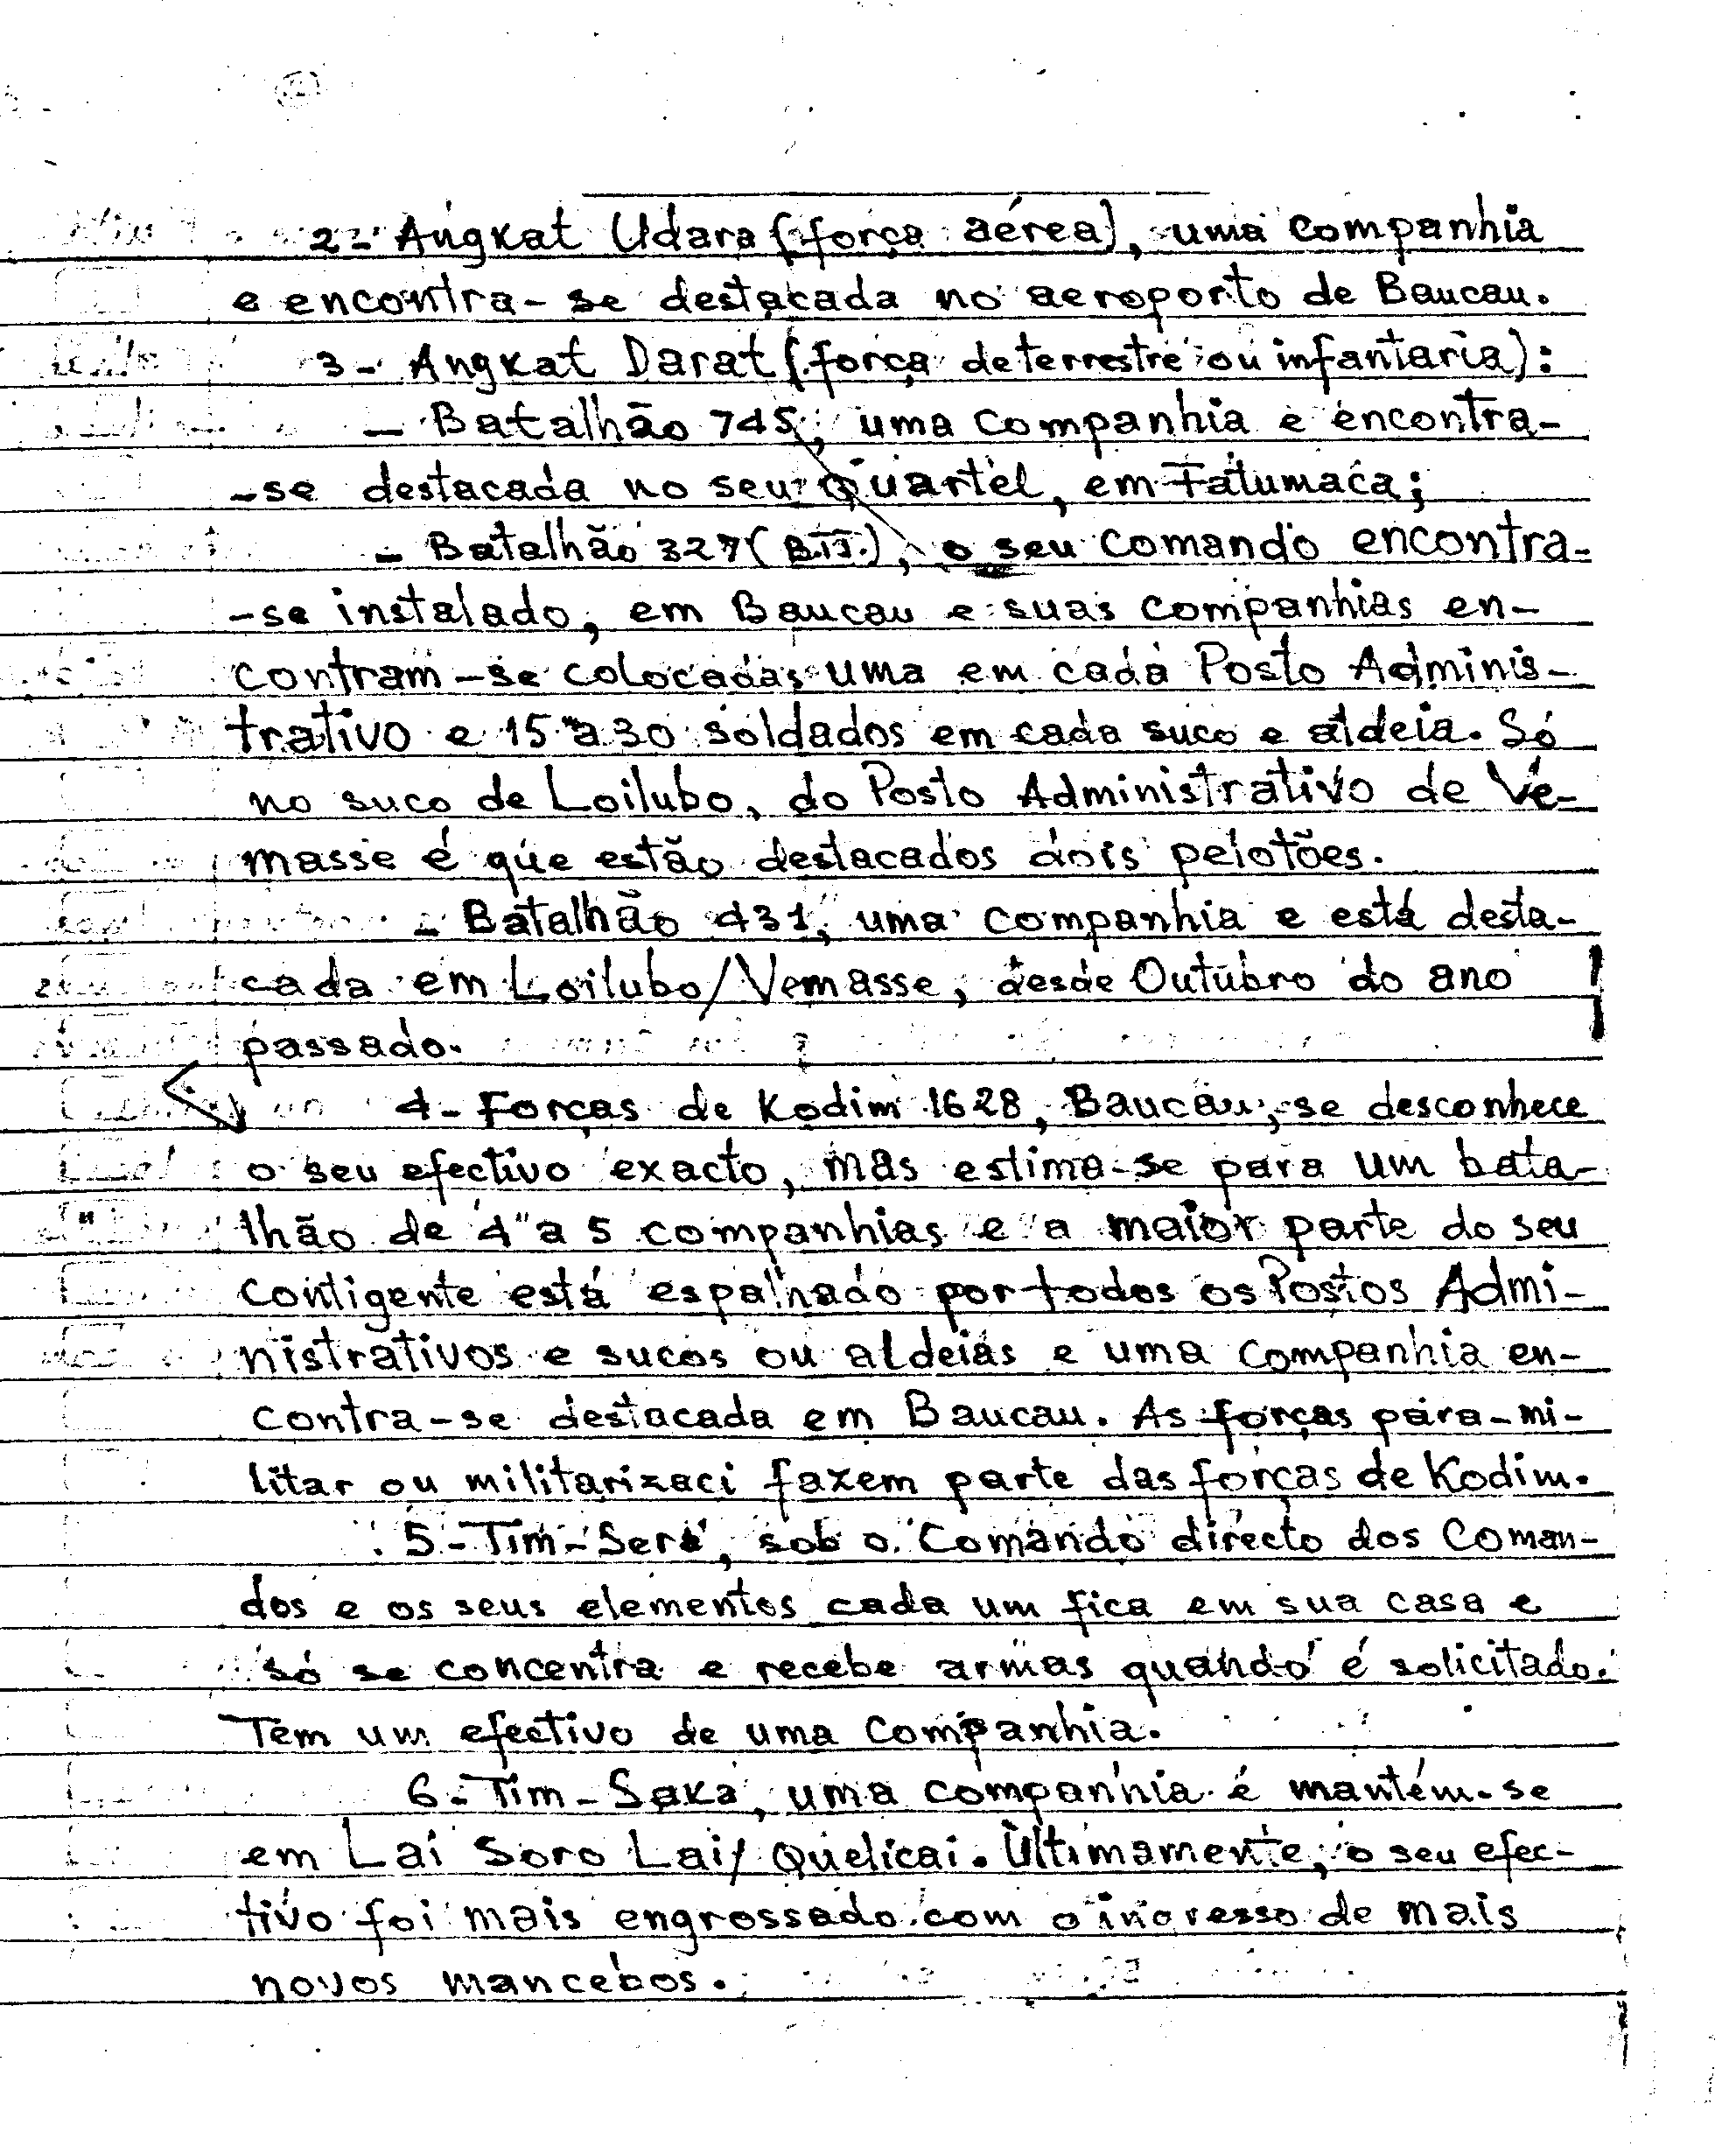 2- Angkat Udara (força aérea), uma companhia
e encontra-se destacada no aeroporto de Baucau.
3- Angkat Darat (força de terrestre ou infantaria):
- Batalhão 745, uma companhia e encontra-
-se destacada no seu Quartel, em Fatumaca;
- Batalhão 327 (B.T.T.), o seu Comando encontra-
-se instalado, em Baucau e suas companhias en-
contram-se colocadas uma em cada Posto Adminis-
trativo e 15 a 30 soldados em cada suco e aldeia. Só
no suco de Loilubo, do Posto Administrativo de Ve-
masse é que estão destacados dois pelotões.
- Batalhão 431, uma companhia e está desta-
cada em Loilubo/Vemasse, desde Outubro do ano
passado.
4- Forças de Kodim 1628, Baucau, se desconhece
o seu efectivo exacto, mas estima-se para um bata-
lhão de 4 a 5 companhias e a maior parte do seu
contigente está espalhado por todos os Postos Admi-
nistrativos e sucos ou aldeias e uma companhia en-
contra-se destacada em Baucau. As forças para-mi-
litar ou militarizaci fazem parte das forças de Kodim.
5- Tim-Sera, sob o Comando directo dos Coman-
dos e os seus elementos cada um fica em sua casa e
só se concentra e recebe armas quando é solicitado.
Tem um efectivo de uma companhia.
6- Tim-Saka, uma companhia é mantém-se
em Lai Soro Lai/Quelicai. Ultimamente, o seu efec-
tivo foi mais engrossado com o ingresso de mais
novos mancebos.